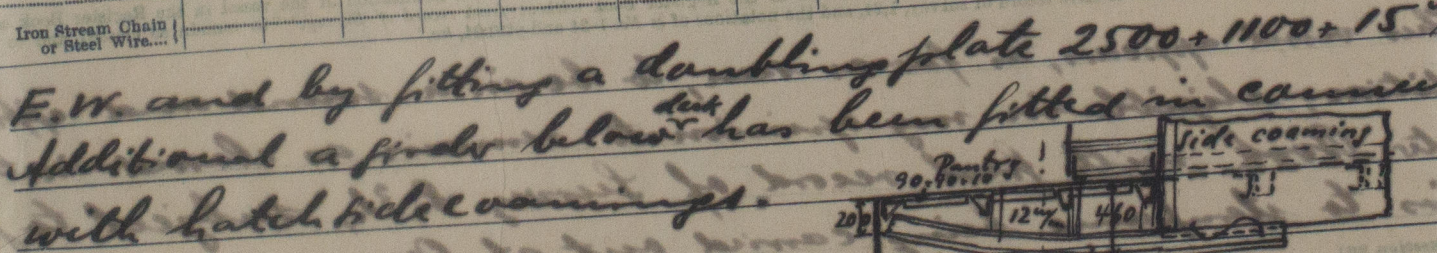 Iron Stream Chain
or Steel Wire....
E.W. and by fitting a doubling plate 2500 + 1100 + 15
Additional a girder below deck has been fitted in
with hatch side coamings.
side coaming
Pantry
90.90.10
20
12 m/m
460